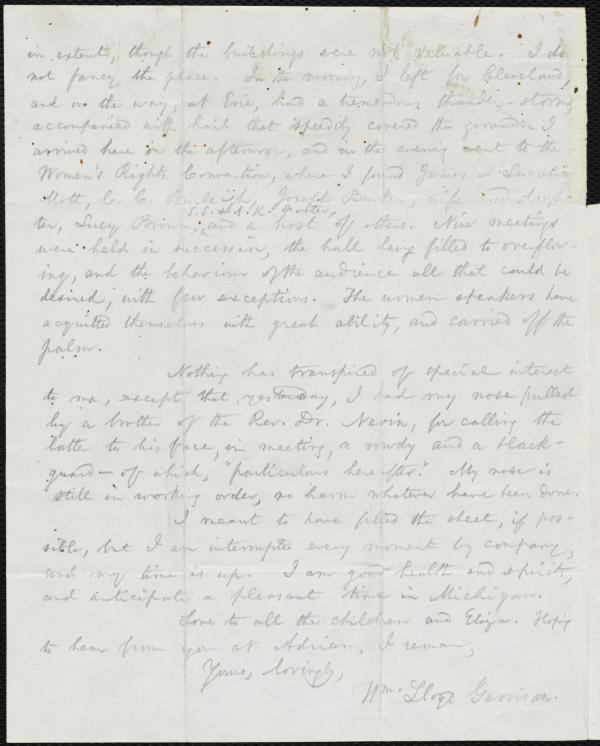 in extent, though the buildings were not valuable. I do
not fancy the place. In the morning, I left for Cleveland,
and on the way, at Erie, had a tremendous thunder-storm,
accompanied with hail that speedily covered the ground. I
arrived here in the afternoon, and in the evening went to the
Women's Rights Convention, where I found James & Lucretia
Mott, C. C. Burleigh, Joseph Barker, wife and daugh-
S.S. & A.K. Foster,
ter, Lucy Brown, and a host of others. Nine meetings
were held in succession, the hall being filled to overflow-
ing, and the behaviour of the audience all that could be
desired, with few exceptions. The women speakers have
acquitted themselves with great ability, and carried off the
palm.
Nothing has transpired of special interest
to me, except that, yesterday, I had my nose pulled
by a brother of the Rev. Dr. Nevin, for calling the
latter to his face, in meeting, a rowdy and a black-
guard—of which, "particulars hereafter." My nose is
still in working order, no harm whatever have been done.
I meant to have filled the sheet, if pos-
sible, but I am interrupted every moment by company,
and my time is up. I am good health and spirits,
and anticipate a pleasant time in Michigan.
Love to all the children and Eliza. Hoping
to hear from you at Adrian, I remain,
Yours, lovingly,
Wm. Lloyd Garrison.